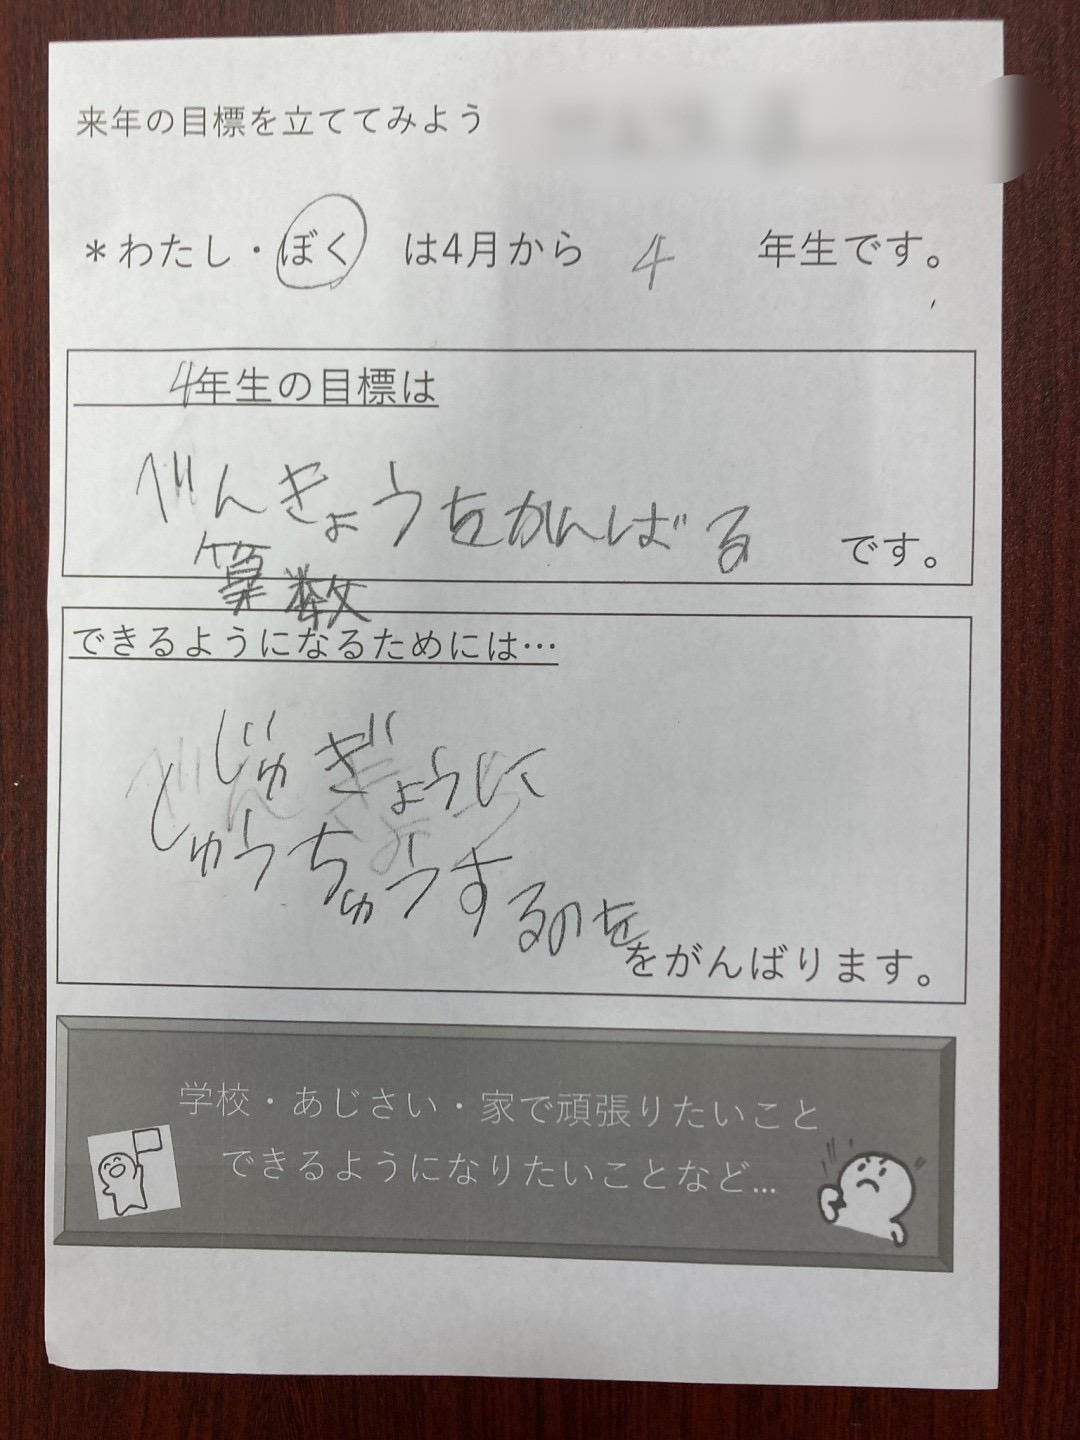 来年の目標を立ててみよう
＊わたし・ぼく は4月から 4 年生です。
4年生の目標は
べんきょうをがんばる です。
算数
できるようになるためには…
じゅぎょうに
しゅうちゅうするのを
をがんばります。
学校・あじさい・家で頑張りたいこと
できるようになりたいことなど…